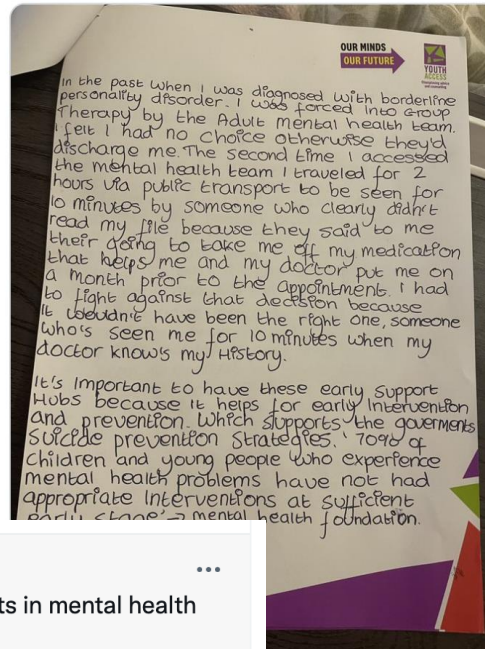 OUR MINDS
OUR FUTURE
YOUTH
ACCESS
In the past when I was diagnosed with borderline
personality disorder. I was forced into Group
Therapy by the Adult mental health team.
I felt I had no choice otherwise they'd
discharge me. The second time I accessed
the mental health team I traveled for 2
hours via public transport to be seen for
10 minutes by someone who clearly didn't
read my file because they said to me
their going to take me off my medication
that helps me and my doctor put me on
a month prior to the appointment. I had
to fight against that decision because
It wouldn't have been the right one, someone
who's seen me for 10 minutes when my
doctor knows my History.
It's Important to have these early support
Hubs because it helps for early Intervention
and prevention. Which supports the goverments
Suicide prevention Strategies. '70% of
children and young people who experience
mental health problems have not had
appropriate Interventions at sufficient
early stage' → mental health foundation.
ts in mental health